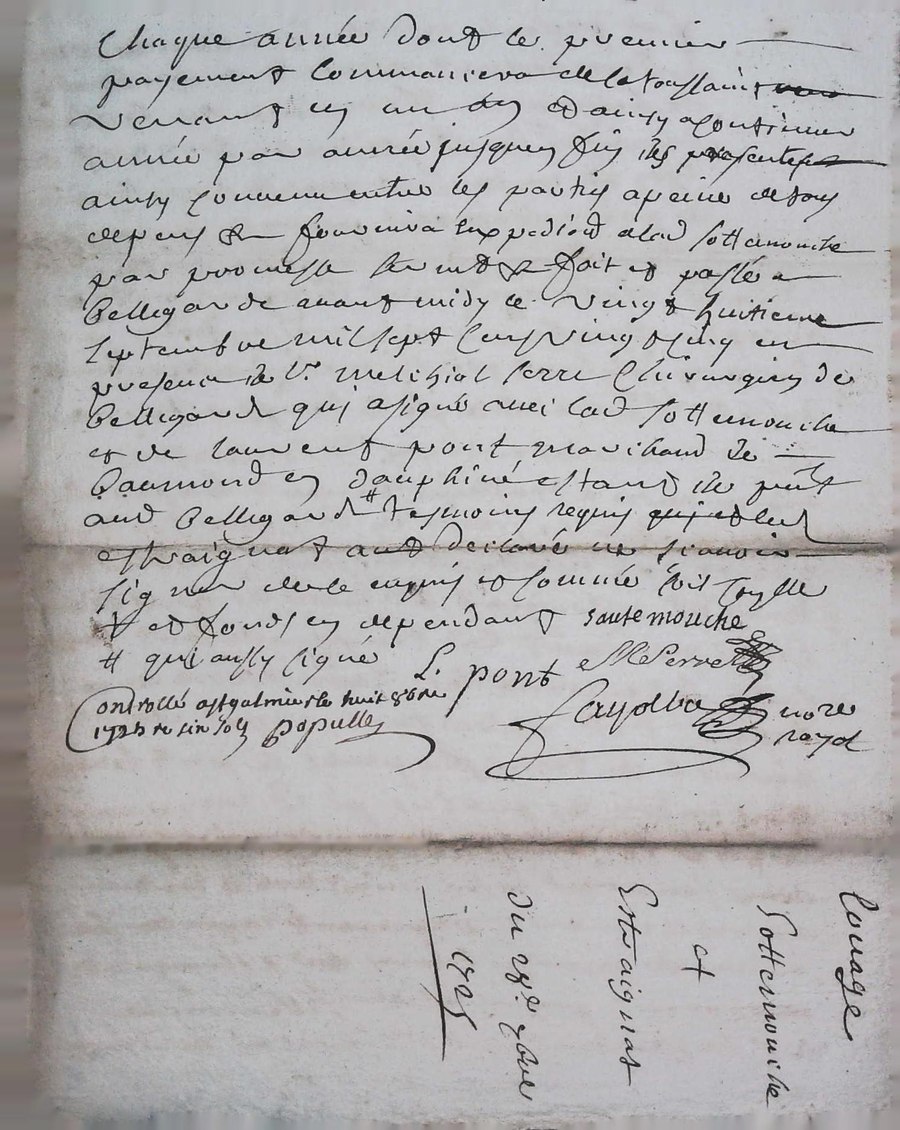 Chaque année dont le premier
payement commancera de la toussaint
venant en un an et ainsy a continuer
année par année jusques fin des presentes
ainsy convenu entre les partis a peine de tous
depens & fournira expediōn a lad sottemouche
par promesse serment & fait et passé a
Bellegarde avant midy le vingt huitieme
septembre mil sept cens vingt cinq en
presence de Sr melchiol perre Chirurgien de
Bellegarde qui a signé avec lad sottemouche
et de laurent pont marchand de
Baumond en dauphiné estant de pnt
aud Bellegard # tesmoins requis
estraignat declaré ne scavoir
signer de ce enquis et sommé soit
et fonds en dependant sautemouche
# qui aussy signé L. pont M Perret
Controllé a st galmier le huit 8bre
1725 r six sols populle fayolle nore
royal
Louage
Sottemouche
et
Estraignat
du 28e 7bre
1725